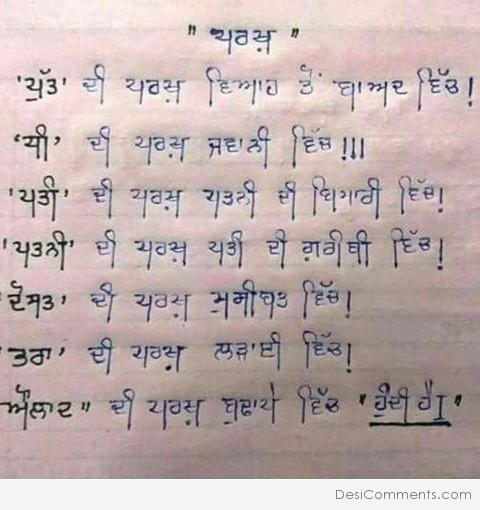 " ਪਰਖ਼ "
'ਪੁੱਤ' ਦੀ ਪਰਖ਼ ਵਿਆਹ ਤੋਂ ਬਾਅਦ ਵਿੱਚ!
'ਧੀ' ਦੀ ਪਰਖ਼ ਜਵਾਨੀ ਵਿੱਚ!!!
'ਪਤੀ' ਦੀ ਪਰਖ਼ ਪਤਨੀ ਦੀ ਬਿਮਾਰੀ ਵਿੱਚ!
'ਪਤਨੀ' ਦੀ ਪਰਖ਼ ਪਤੀ ਦੀ ਗ਼ਰੀਬੀ ਵਿੱਚ!
'ਦੋਸਤ' ਦੀ ਪਰਖ਼ ਮੁਸੀਬਤ ਵਿੱਚ!
'ਤਰਾ' ਦੀ ਪਰਖ਼ ਲੜਾਈ ਵਿੱਚ!
ਔਲਾਦ" ਦੀ ਪਰਖ਼ ਬੁਢਾਪੇ ਵਿੱਚ "ਹੁੰਦੀ ਹੈ।"
DesiComments.com